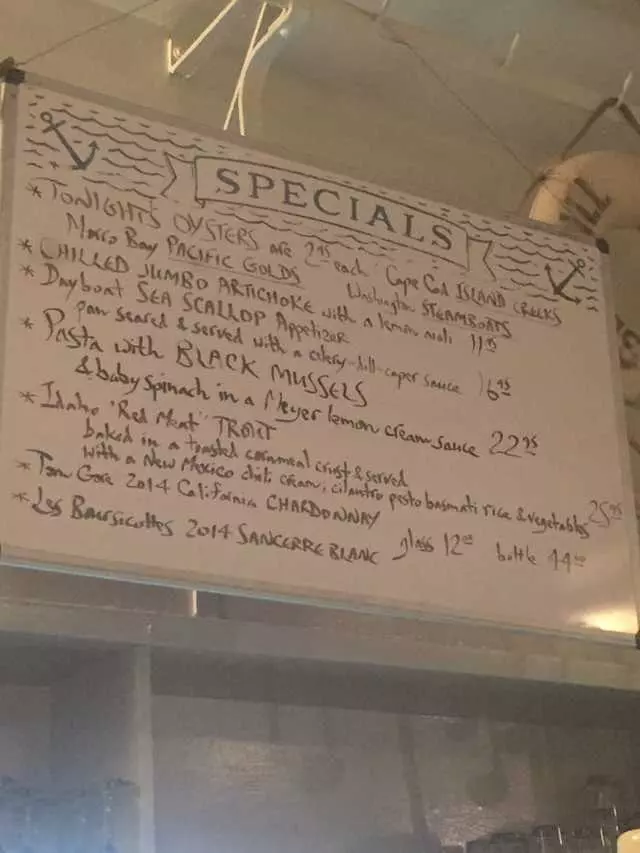 SPECIALS
* TONIGHT'S OYSTERS are 2.95 each Cape Cod ISLAND CREEKS
Morro Bay PACIFIC GOLDS Washington STEAMBOATS
* CHILLED JUMBO ARTICHOKE with a lemon aioli 11.95
* Dayboat SEA SCALLOP Appetizer
pan seared & served with a celery-dill-caper sauce 16.95
* Pasta with BLACK MUSSELS
& baby spinach in a Meyer lemon cream sauce 22.95
* Idaho "Red Meat" TROUT
baked in a toasted cornmeal crust & served
with a New Mexico chili cream, cilantro pesto basmati rice & vegetables 25.95
* Tom Gore 2014 California CHARDONNAY
* Les Boursicottes 2014 SANCERRE BLANC glass 12.00 bottle 44.00